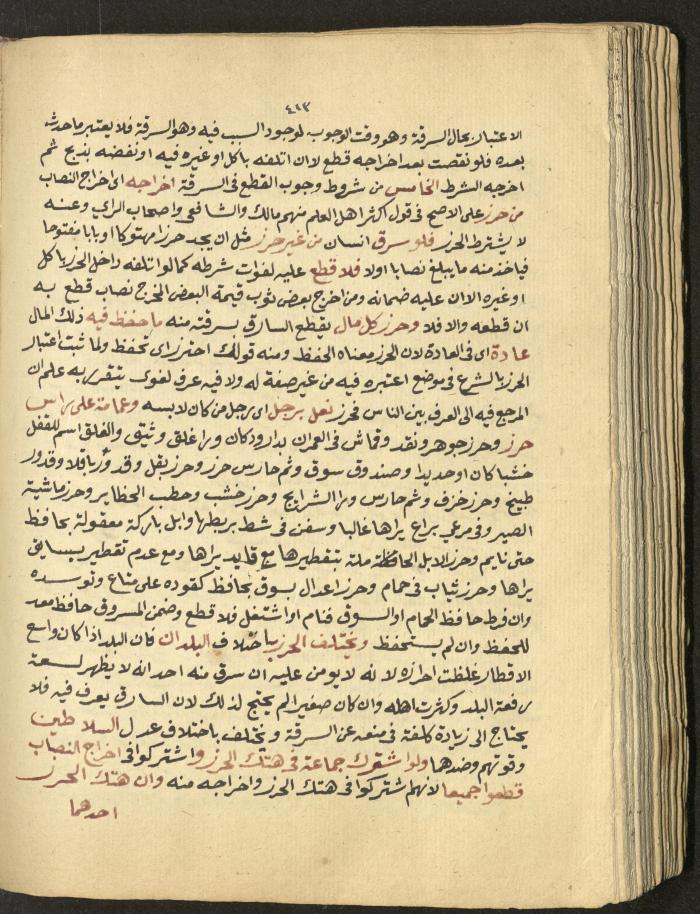 ٤١٣
الاعتبار بحال السرقة وهو وقت الوجوب لوجود السبب فيه وهو السرقة فلا يعتبر ما حدث
بعده فلو نقصت بعد اخراجه قطع لا ان اتلفه باكل او غيره فيه او نقضه بذبح ثم
اخرجه الشرط الخامس من شروط وجوب القطع في السرقة اخراجه اى اخراج النصاب
من حرز على الاصح في قول اكثر اهل العلم منهم مالك والشافعي واصحاب الراي وعنه
لا يشترط الحرز فلو سرق انسان من غير حرز مثل ان يجد حرزا مهتوكا او بابا مفتوحا
فياخذ منه ما يبلغ نصابا اولا فلا قطع عليه لفوات شرطه كما لو اتلفه داخل الحرز باكل
او غيره الا ان عليه ضمانه ومن اخرج بعض ثوب قيمة البعض المخرج نصاب قطع به
ان قطعه والا فلا وحرز كل مال يقطع السارق لسرقته منه ما حفظ فيه ذلك المال
عادة اى في العادة لان الحرز معناه الحفظ ومنه قولك احترز اى تحفظ ولما ثبت اعتبار
الحرز بالشرع في موضع اعتبره فيه من غير صفة له ولا فيه عرف لغوى يتقرر به علم ان
المرجع فيه الى العرف بين الناس فحرز نعل برجل اى برجل من كان لابسه وعمامة على راس
حرز وحرز جوهر ونقد وقماش في العمران بدار ودكان ورا غلق وثيق والغلق اسم للقفل
خشبا كان او حديدا وصندوق سوق وثم حارس حرز وحرز بقل وقدور باقلا وقدور
طبيخ وحرز خزف وثم حارس ورا الشرايج وحرز خشب وحطب الحظاير وحرز ماشية
الصير وفي مرعى براع يراها غالبا وسفن في شط بربطها وابل باركة معقولة بحافظ
حتى نايم وحرز الابل بتقطيرها مع قايد يراها ومع عدم تقطير بسايق
يراها وحرز ثياب في حمام وحرز اعدال بسوق بحافظ كقوده على متاع وتوسده
وان فرط حافظ الحمام او السوق فنام او اشتغل فلا قطع وضمن المسروق حافظ معد
للحفظ وان لم يستحفظ ويختلف الحرز باختلاف البلدان فان البلد اذا كان واسع
الاقطار غلظت احرازه لانه لا يومن عليه ان سرق منه احد انه لا يظهر لسعة
رقعة البلد وكثرت اهله وان كان صغيرا لم يحتج لذلك لان السارق يعرف فيه فلا
يحتاج الى زيادة كلفة في منعه عن السرقة ويختلف باختلاف عدل السلاطين
وقوتهم وضدهما ولو اشترك جماعة في هتك الحرز واشتركوا في اخراج النصاب
قطعوا جميعا لانهم اشتركوا في هتك الحرز واخراجه منه وان هتك الحرز
احدهما